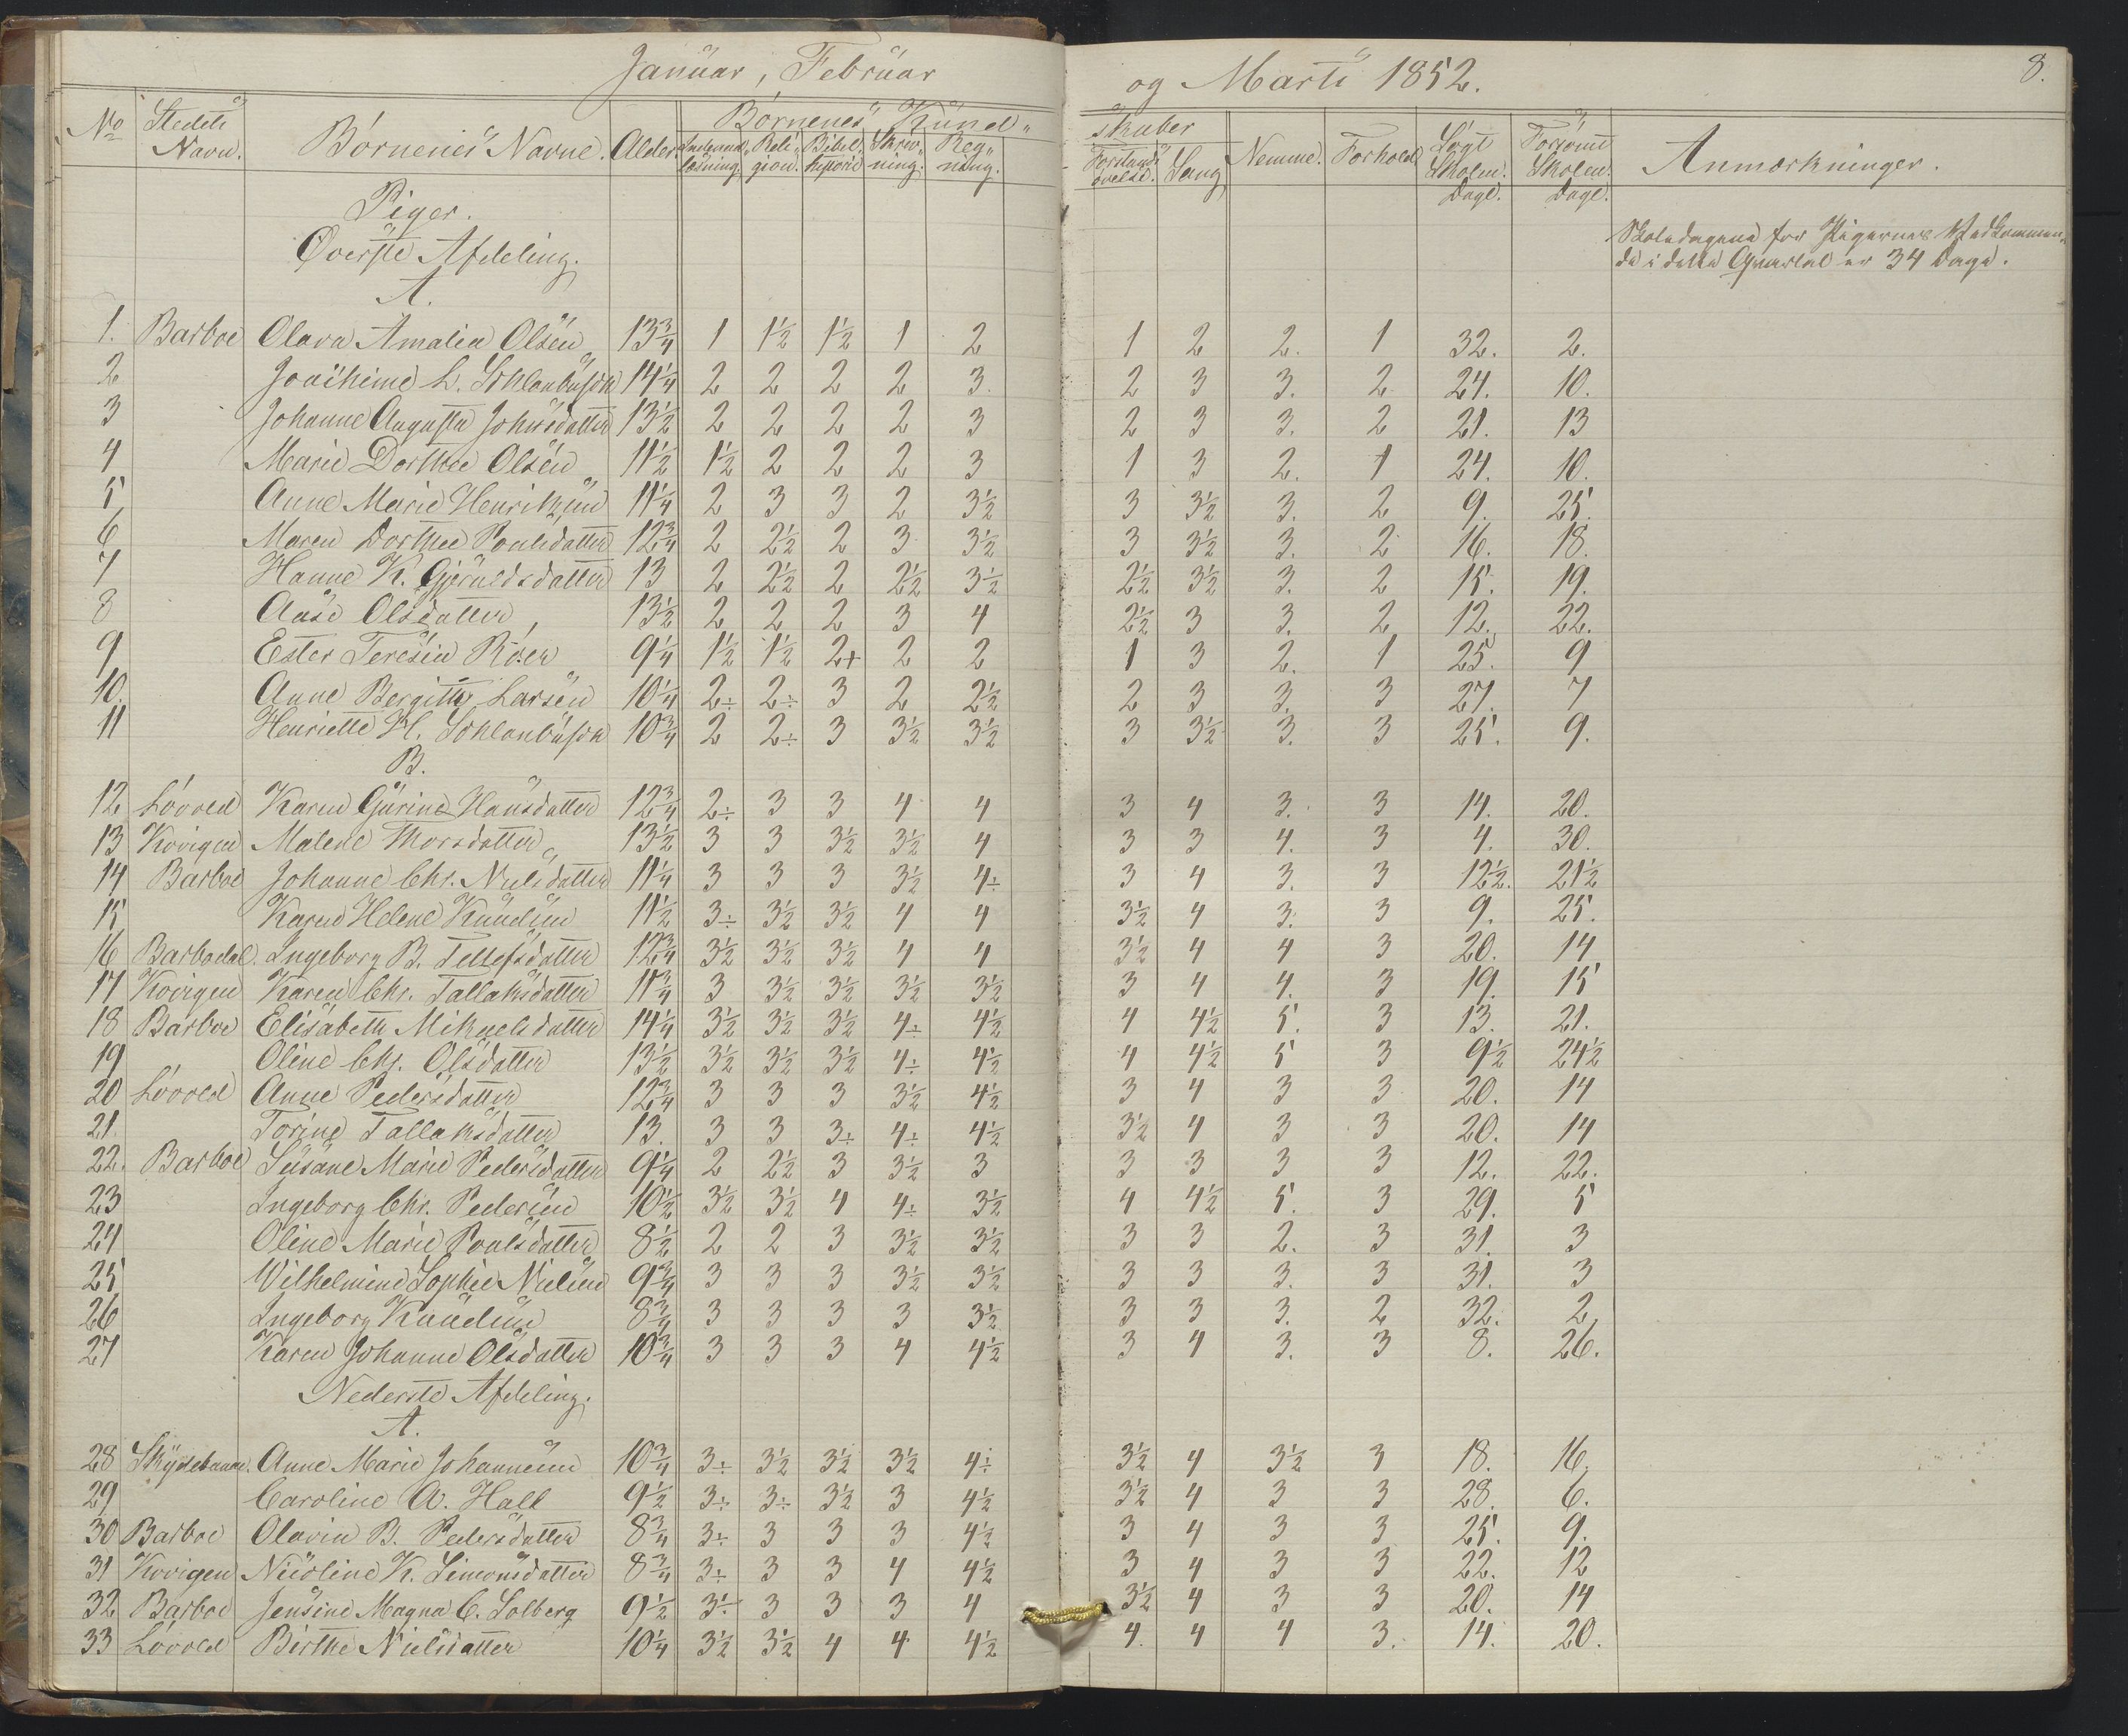 Januar, Februar og Marts 1852. 8.
No Stedets Navn. Børnenes Navne. Alder. Børnenes Kundskaber Nemme. Forhold Søgt Skolen. Dage. Forsømt Skolen. Dage. Anmærkninger.
Indenadlæsning. Religion. Bibelhistorie Skrivning. Regning. Forstandsøvelse. Sang
Piger.
Skoledagene for Pigernes Vedkommen-
Øverste Afdeling.
de i dette Qvartal er 34 Dage.
A.
1. Barboe Olava Amalia Olsen 13 3/4 1 1 1/2 1 1/2 1 2 1 2 2. 1 32. 2.
2 Joachime L. Schlanbusch 14 1/4 2 2 2 2 3. 2 3 3. 2 24. 10.
3 Johanne Augusta Johnsdatter 13 1/2 2 2 2 2 3 2 3 3. 2 21. 13
4 Marie Dorthee Olsen 11 1/2 1 1/2 2 2 2 3 1 3 2. 1 24. 10.
5 Anne Marie Henriksen 11 1/4 2 3 3 2 3 1/2 3 3 1/2 3. 2 9. 25.
6 Maren Dorthee Poulsdatter 12 3/4 2 2 1/2 2 3 3 1/2 3 3 1/2 3. 2 16. 18.
7 Hanne K. Gjeruldsdatter 13 2 2 1/2 2 2 1/2 3 1/2 2 1/2 3 1/2 3. 2 15. 19.
8 Aase Olsdatter 13 1/2 2 2 2 3 4 2 1/2 3 3. 2 12. 22.
9 Ester Teresia Röer 9 1/4 1 1/2 1 1/2 2+ 2 2 1 3 2. 1 25. 9
10. Anne Bergitte Larsen 10 1/4 2÷ 2÷ 3 2 2 1/2 2 3 3. 3 27. 7
11 Henriette H. Schlanbusch 10 3/4 2 2÷ 3 3 1/2 3 1/2 3 3 1/2 3. 3 25. 9.
B.
12 Lövold Karen Gurine Hansdatter 12 3/4 2÷ 3 3 4 4 3 4 3. 3 14. 20.
13 Kovigen Malene Thorsdatter 13 1/2 3 3 3 1/2 3 1/2 4 3 3 4. 3 4. 30.
14 Barboe Johanne Chr. Nielsdatter 11 1/4 3 3 3 3 1/2 4÷ 3 4 3. 3 12 1/2. 21 1/2
15 Karen Helene Knudsen 11 1/2 3÷ 3 1/2 3 1/2 4 4 3 1/2 4 3. 3 9. 25.
16 Barbodal. Ingeborg B. Tellefsdatter 12 3/4 3 1/2 3 1/2 3 1/2 4 4 3 1/2 4 4 3 20. 14
17 Kovigen Karen Chr. Tallaksdatter 11 3/4 3 3 1/2 3 1/2 3 1/2 3 1/2 3 4 4. 3 19. 15
18 Barboe Elisabeth Mikaelsdatter 14 1/4 3 1/2 3 1/2 3 1/2 4÷ 4 1/2 4 4 1/2 5. 3 13. 21.
19 Oline Chr. Olsdatter 13 1/2 3 1/2 3 1/2 3 1/2 4÷ 4 1/2 4 4 1/2 5 3 9 1/2 24 1/2
20 Lövold Anne Pedersdatter 12 3/4 3 3 3 3 1/2 4 1/2 3 4 3 3 20. 14
21. Torine Tallaksdatter 13. 3 3 3÷ 4÷ 4 1/2 3 1/2 4 3 3 20. 14
22. Barboe Susane Marie Pedersdatter 9 1/4 2 2 1/2 3 3 1/2 3 3 3 3 3 12. 22.
23 Ingeborg Chr. Pedersen 10 1/2 3 1/2 3 1/2 4 4÷ 3 1/2 4 4 1/2 5. 3 29. 5
24 Oline Marie Poulsdatter 8 1/2 2 2 3 3 1/2 3 1/2 3 3 2. 3 31. 3
25 Wilhelmine Sophie Nielsen 9 3/4 3 3 3 3 1/2 3 1/2 3 3 3. 3 31. 3
26 Ingeborg Knudsen 8 3/4 3 3 3 3 3 1/2 3 3 3. 2 32. 2
27 Karen Johanne Olsdatter 10 3/4 3 3 3 4 4 1/2 3 4 3. 3 8. 26.
Nederste Afdeling.
A.
28 Skydebanne. Anne Marie Johannesen 10 3/4 3÷ 3 1/2 3 1/2 3 1/2 4÷ 3 1/2 4 3 1/2 3 18. 16.
29 Caroline A. Hall 9 1/2 3÷ 3÷ 3 1/2 3 4 1/2 3 1/2 4 3 3 28. 6.
30 Barboe Olavia B. Pedersdatter 8 3/4 3÷ 3 3 3 4 1/2 3 4 3 3 25. 9.
31 Kovigen Nicoline K. Simonsdatter 8 3/4 3÷ 3 3 4 4 1/2 3 4 3 3 22. 12
32 Barboe Jensine Magna C. Solberg 9 1/2 3÷ 3 3 3 4 3 1/2 4 3 3 20. 14
33 Lövold Birthe Nielsdatter 10 1/4 3 1/2 3 1/2 4 4 4 1/2 4. 4 4 3. 14. 20.